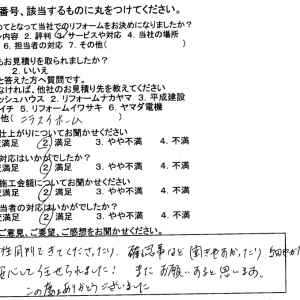 番号、該当するものに丸をつけてください。
めてとなって当社でのリフォームをお決めになりましたか?
ン内容 2. 評判 3. サービスや対応 4. 当社の場所
6. 担当者の対応 7. その他(
もお見積りを取られましたか?
2. いいえ
と答えた方へ質問です。
なければ、他社のお見積り先を教えてください
ッシュハウス 2. リフォームナカヤマ 3. 平成建設
イチ 5. リフォームイワサキ 6. ヤマダ電機
他(
仕上がりについてお聞かせください
変満足 2. 満足 3. やや不満 4. 不満
対応はいかがでしたか?
変満足 2. 満足 3. やや不満 4. 不満
施工金額についてお聞かせください
変満足 2. 満足 3. やや不満 4. 不満
当者の対応はいかがでしたか?
変満足 2. 満足 3. やや不満 4. 不満
ご意見、ご要望、ご感想をお聞かせください。
てきてくださったり、確認事など聞きやすかったり
して任せられました! またお願いすると思います。
この度はありがとうございました